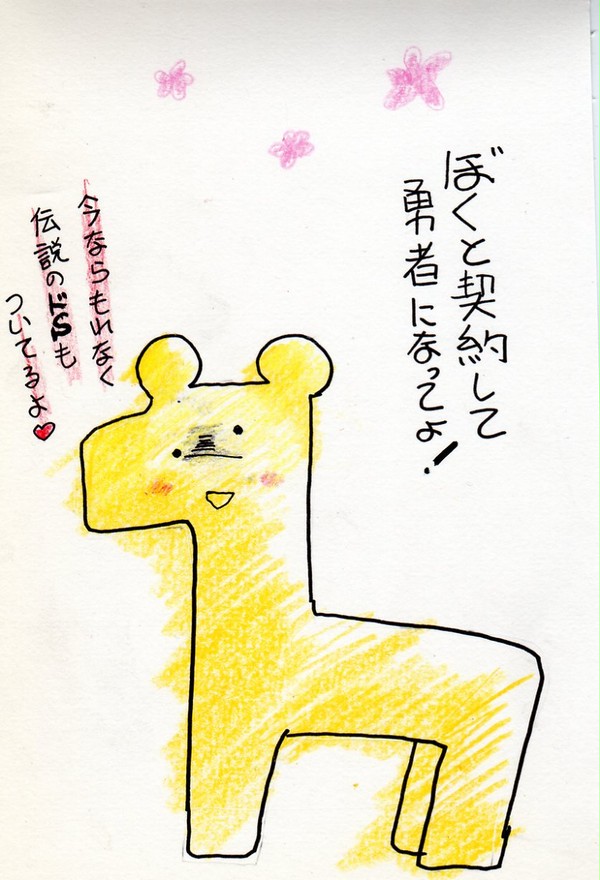 ぼくと契約して
勇者になってよ!
今ならもれなく
伝説のドSも
ついてるよ♥